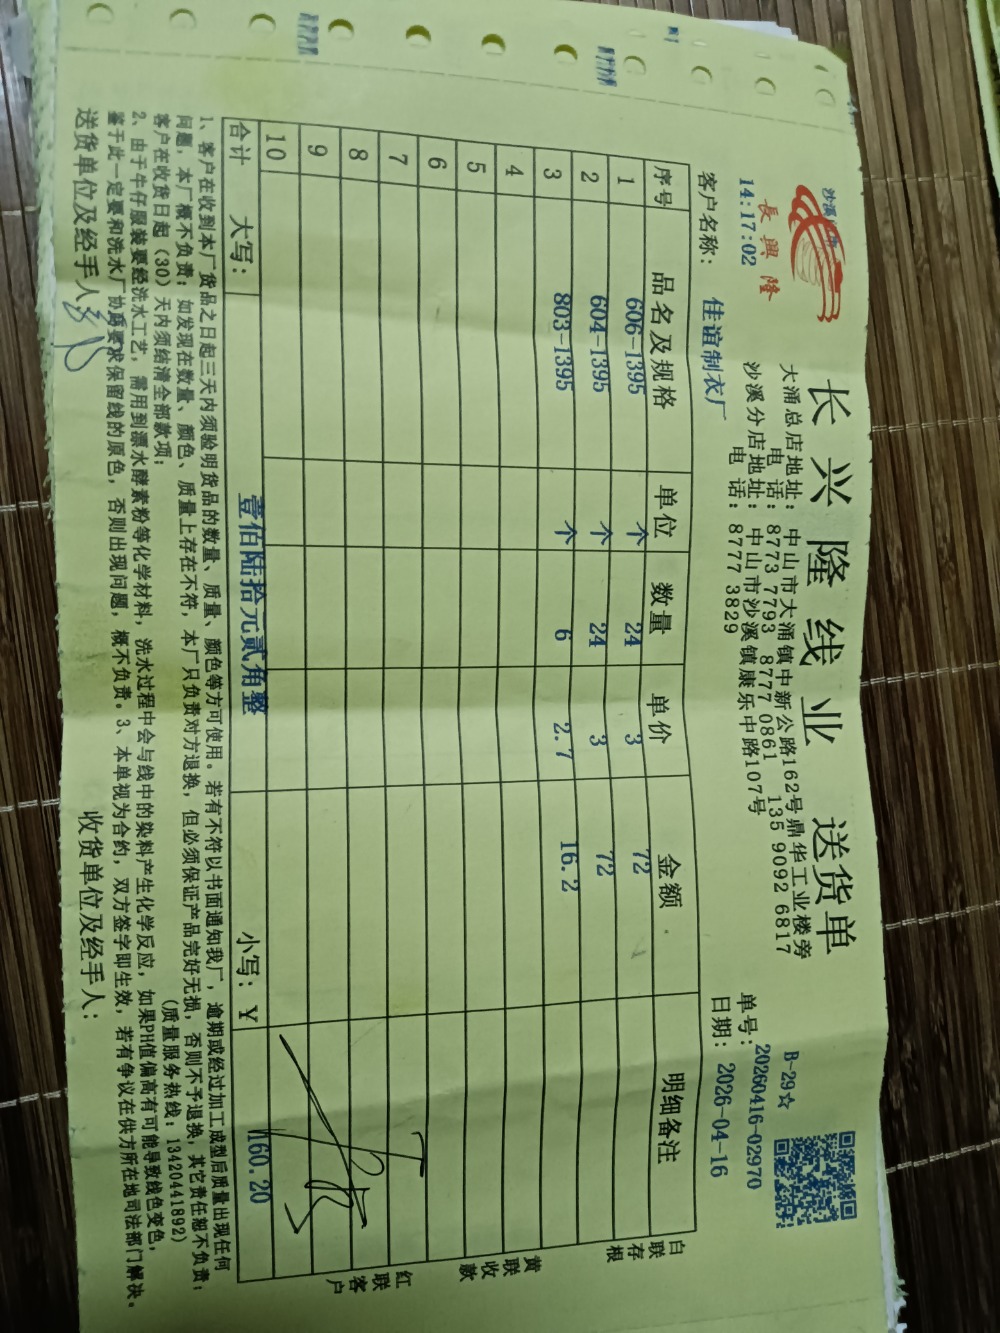 长兴隆线业 送货单
沙溪
長興隆
14:17:02
大涌总店地址：中山市大涌镇中新公路162号鼎华工业楼旁
电 话：8773 7793 8777 0861 135 9092 6817
沙溪分店地址：中山市沙溪镇康乐中路107号
电 话：8777 3829
B-29☆
单号：20260416-02970
日期：2026-04-16
客户名称：佳谊制衣厂
序号 品名及规格 单位 数量 单价 金额 明细备注
1 606-1395 个 24 3 72
2 604-1395 个 24 3 72
3 803-1395 个 6 2.7 16.2
4
5
6
7
8
9
10
合计 大写：壹佰陆拾元贰角整 小写：￥ 160.20
白联存根
黄联收款
红联客户
1、客户在收到本厂货品之日起三天内须验明货品的数量、质量、颜色等方可使用。若有不符以书面通知我厂，逾期或经过加工成型后质量出现任何
问题，本厂概不负责；如发现在数量、颜色、质量上存在不符，本厂只负责对方退换，但必须保证产品完好无损，否则不予退换，其它责任恕不负责；
客户在收货日起（30）天内须结清全部款项； （质量服务热线：13420441892）
2、由于牛仔服装要经洗水工艺，需用到漂水酵素粉等化学材料，洗水过程中会与线中的染料产生化学反应，如果PH值偏高有可能导致线色变色，
鉴于此一定要和洗水厂协商要求保留线的原色，否则出现问题，概不负责。3、本单视为合约，双方签字即生效，若有争议在供方所在地司法部门解决。
送货单位及经手人： 收货单位及经手人：